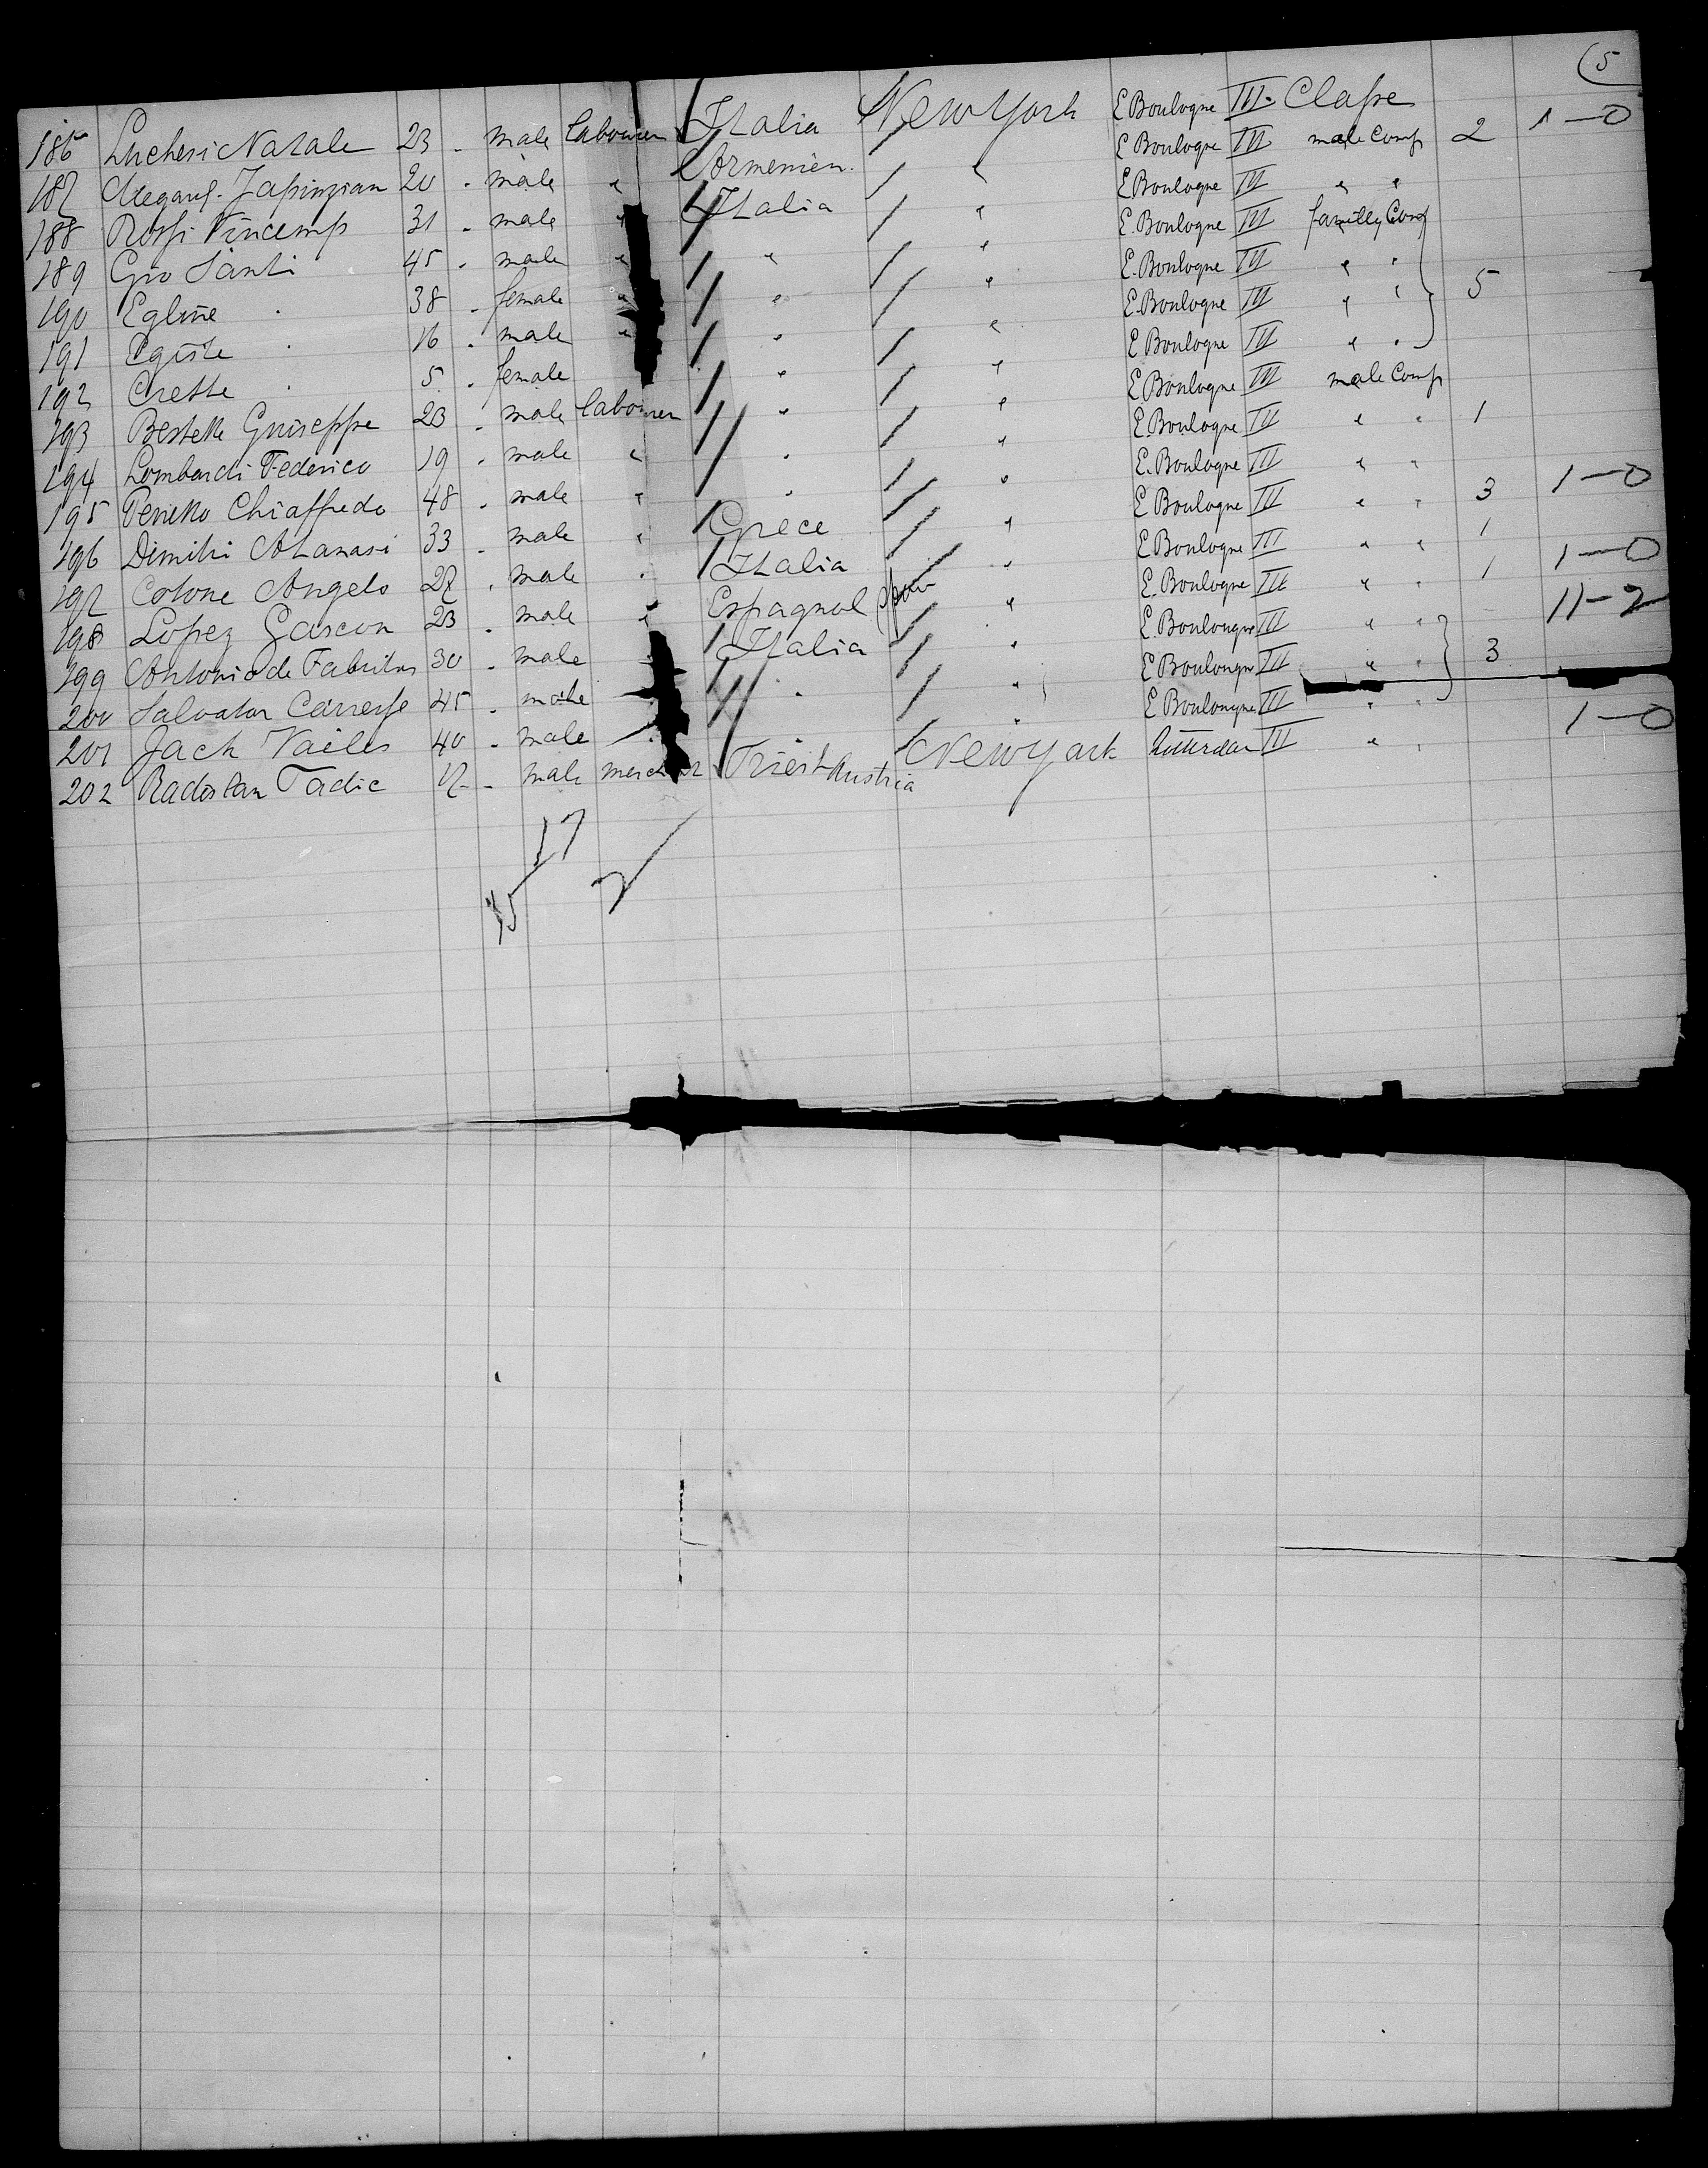 (5
186 Lucheri Natale 23 - male labourer Italia New York E Boulogne III. Classe
187 Megard. Jassinzian 20 - male " Armenien. / " E Boulogne III male Comp 2 1-0
188 Rossi Vincenzo 31 - male " Italia / " E Boulogne III " "
189 Gio Santi 45 - male " " / " E. Boulogne III familly Comp
190 Egline " 38 - female " " / " E. Boulogne III " "
191 Egiste " 16 - male " " / " E. Boulogne III " " 5
192 Creste " 5 - female " / " E Boulogne III " "
193 Bestelle Guiseppe 23 - male labourer " / " E Boulogne III male Comp
194 Lombardi Federico 19 - male " " / " E. Boulogne III " " 1
195 Chiaffredo 48 - male " " / " E. Boulogne III " "
196 Dimitri Atanasi 33 - male " Grece / " E Boulogne III " " 3 1-0
197 Colone Angelo 27 - male " Italia / " E Boulogne III " " 1
198 Lopez Gascon 23 - male " Espagnol / " E. Boulogne III " " 1 1-0
199 Antonio de 30 - male " Italia / " E. Boulongne III " " 11-2
200 Salvator 45 - male " " / " E Boulongne III " " 3
201 Jach 40 - male " " / " E Boulongne III " "
202 Radostan Tadic 17 - male merchant Triest Austria New York III " " 1-0
17
15
2